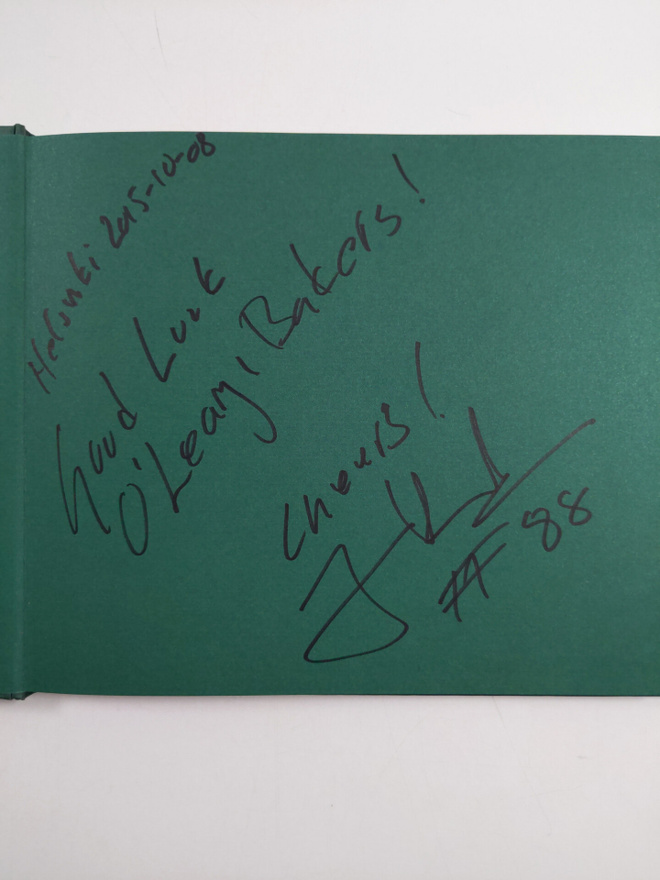 Helsinki 2015-10-08
Good Luck
O'Learys Bakers!
Cheers!
#88